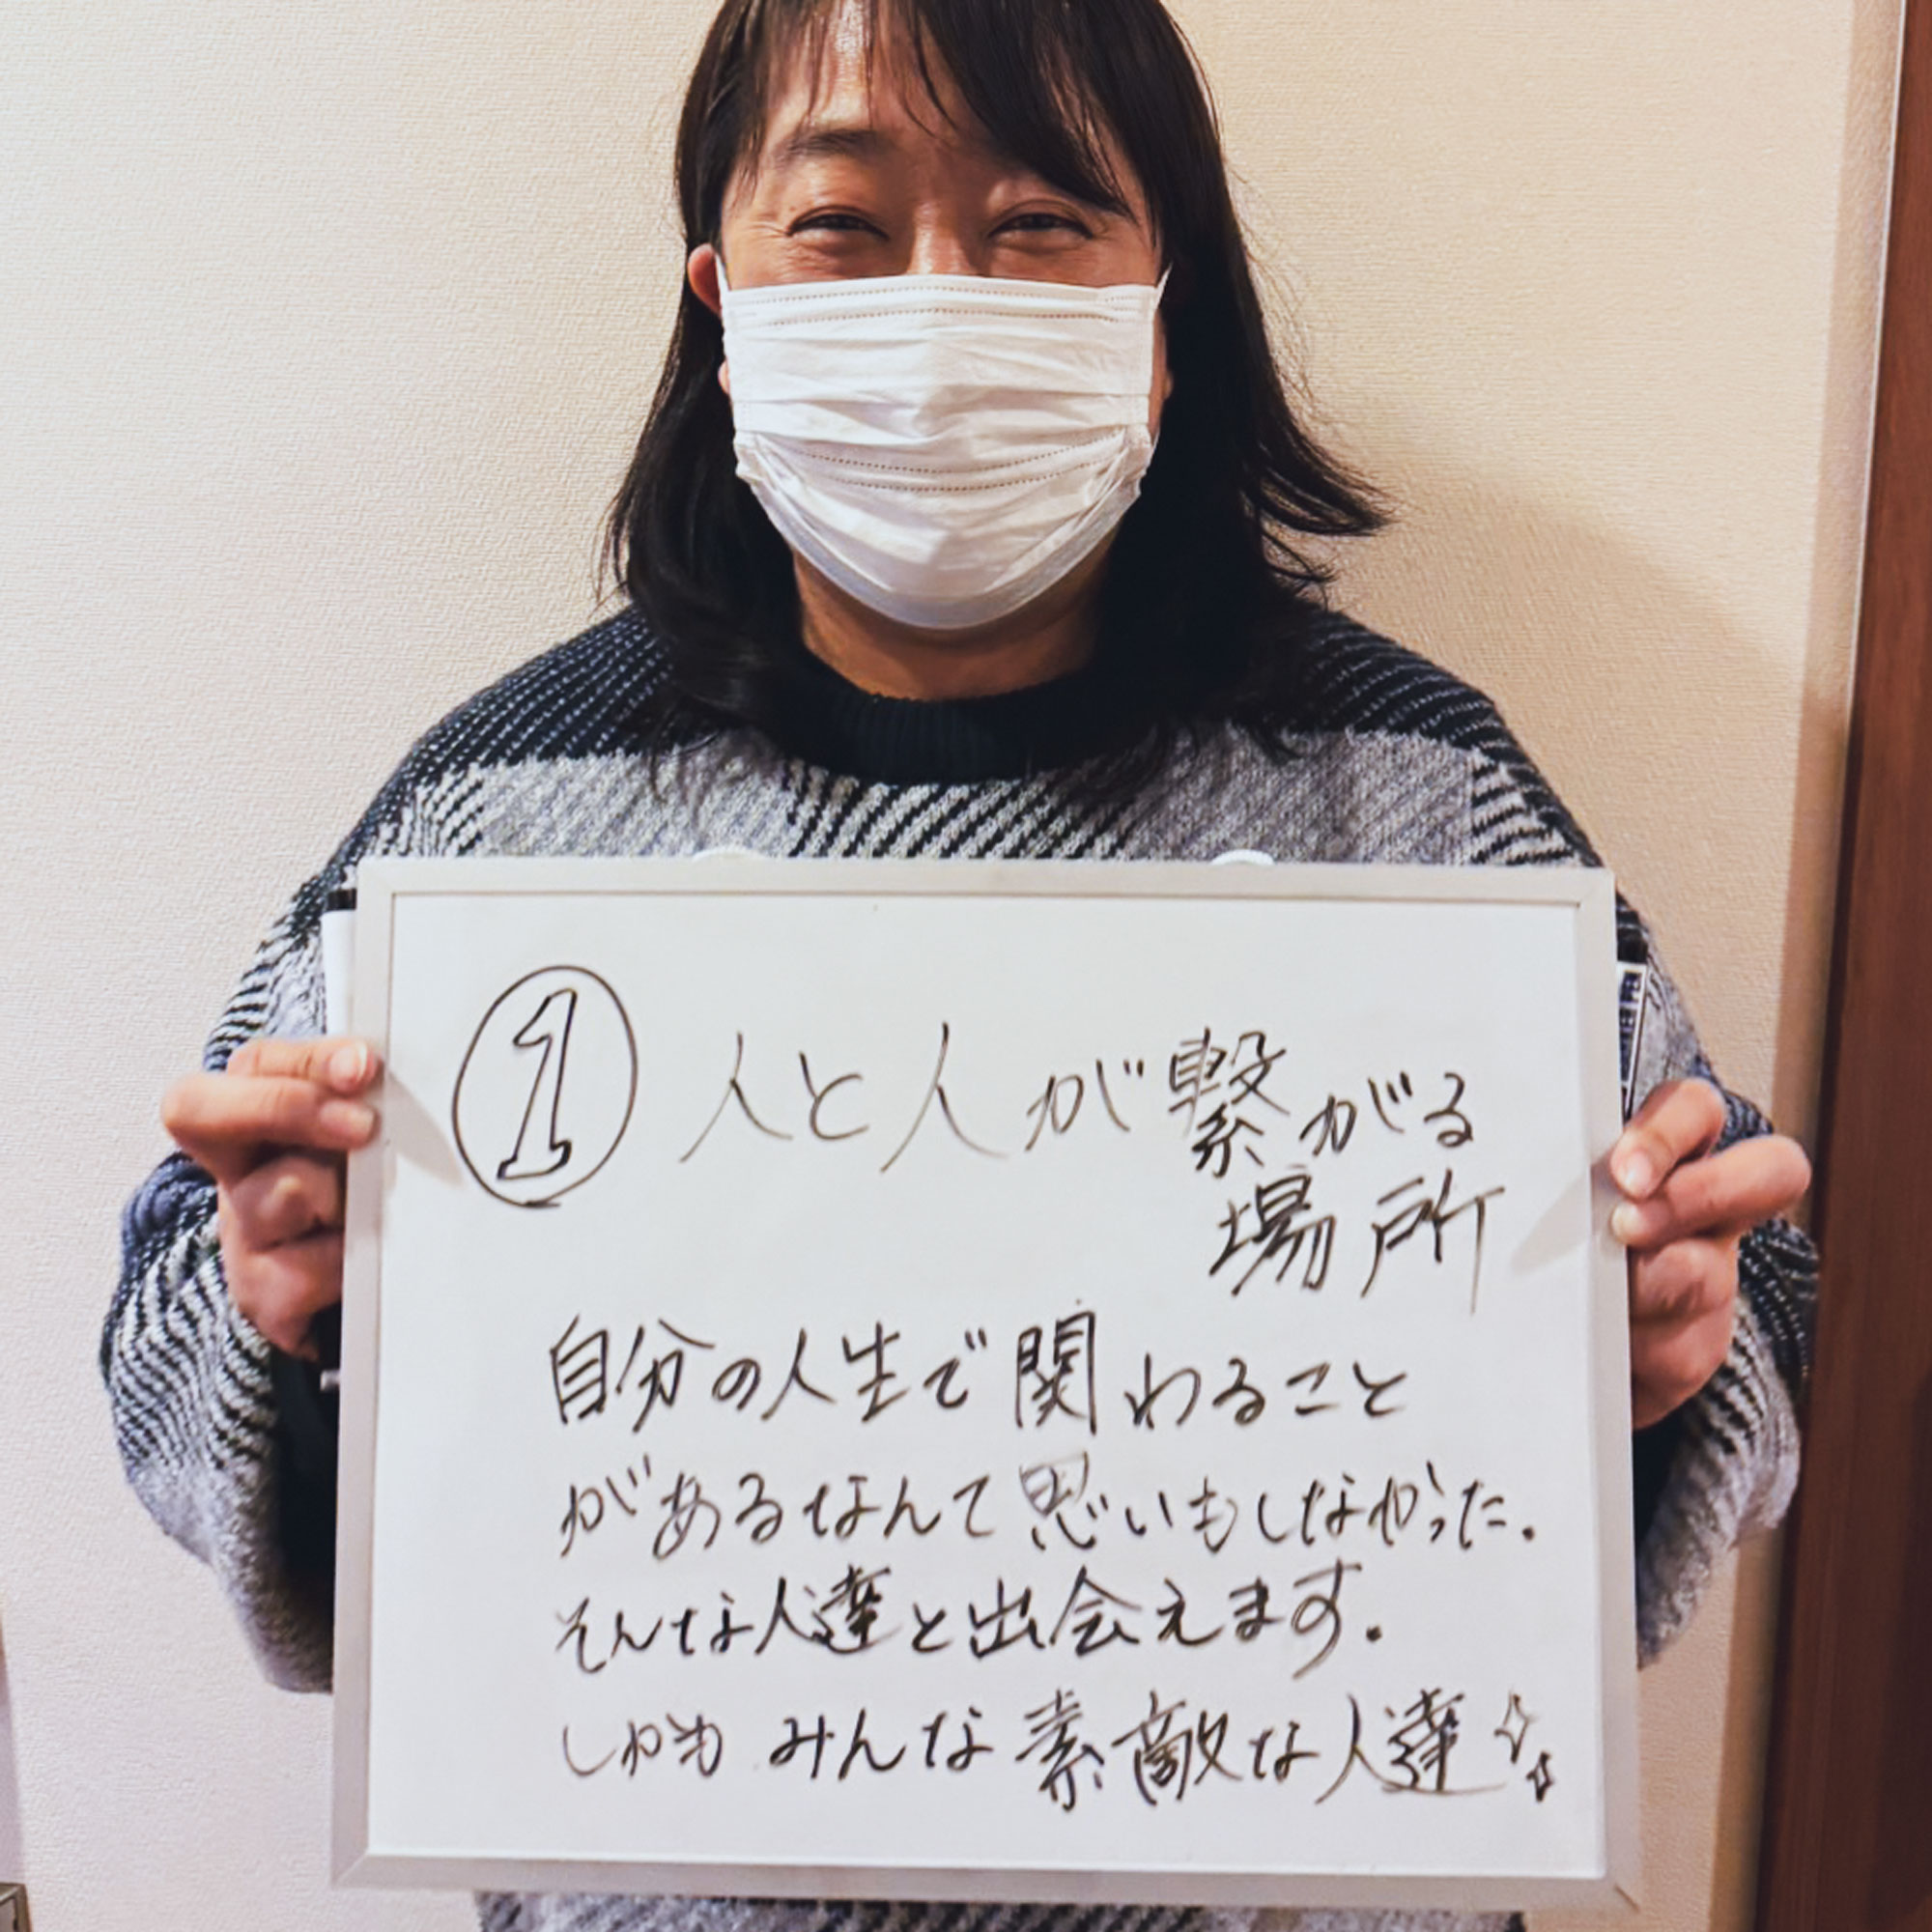 ① 人と人が繋がる
場所
自分の人生で関わること
があるなんて思いもしなかった.
そんな人達と出会えます.
しかも みんな素敵な人達